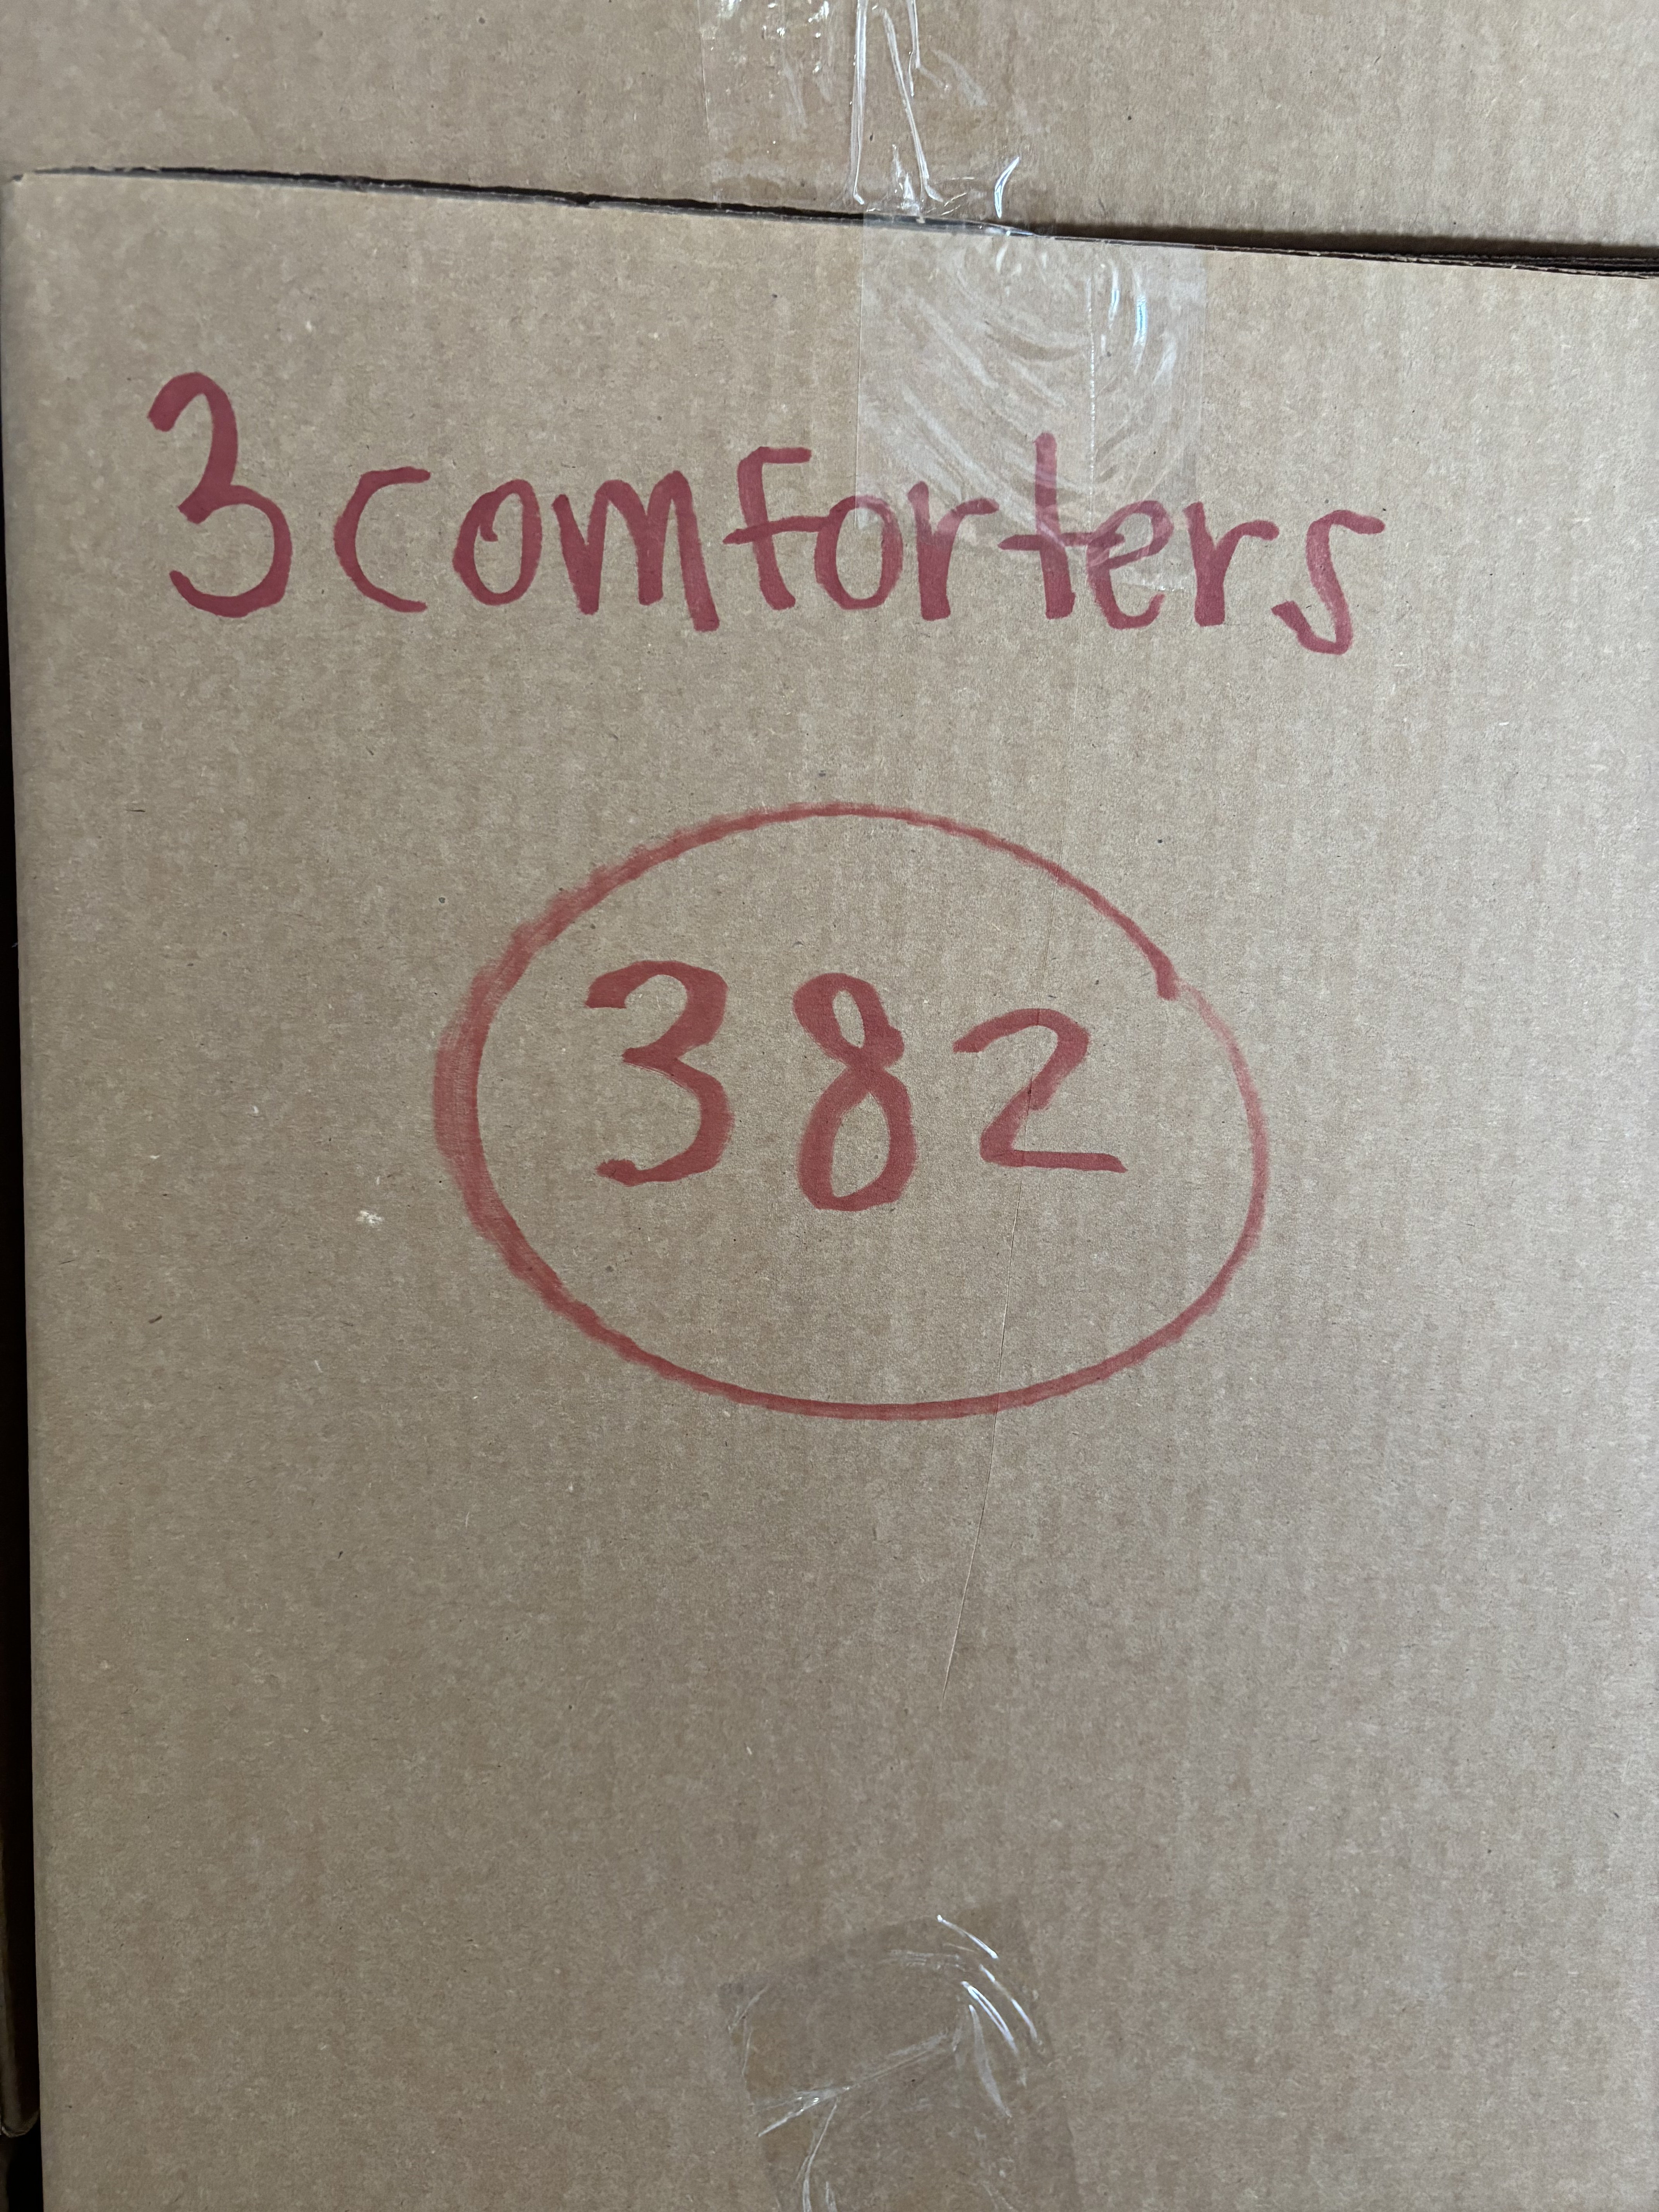 3 comforters
382